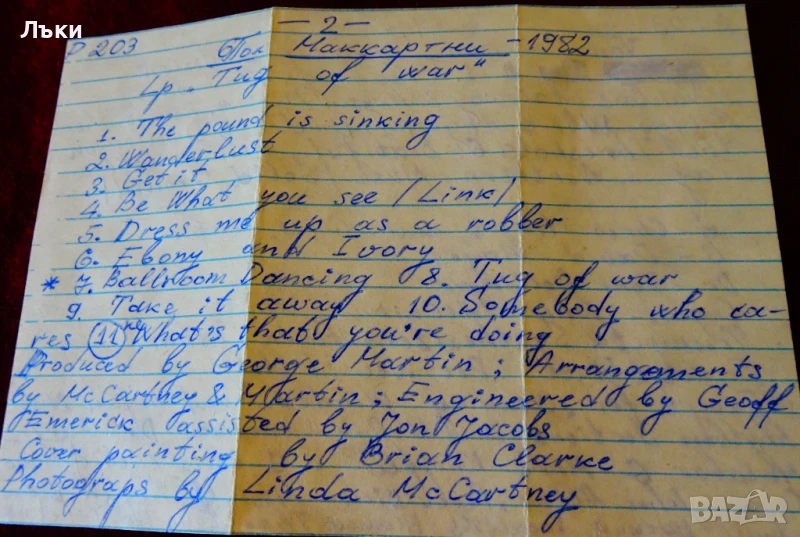 Лъки
— 2 —
P 203 Пол Маккартни - 1982
Lp. Tug of war"
1. The pound is sinking
2. Wanderlust
3. Get it
4. Be What you see /Link/
5. Dress me up as a robber
6. Ebony and Ivory
* 7. Ballroom Dancing 8. Tug of war
9. Take it away 10. Somebody who ca-
res 11. What's that you're doing
Produced by George Martin; Arrangements
by McCartney & Martin; Engineered by Geoff
Emerick assisted by Jon Jacobs
Cover painting by Brian Clarke
Photograps by Linda McCartney
BAZAR